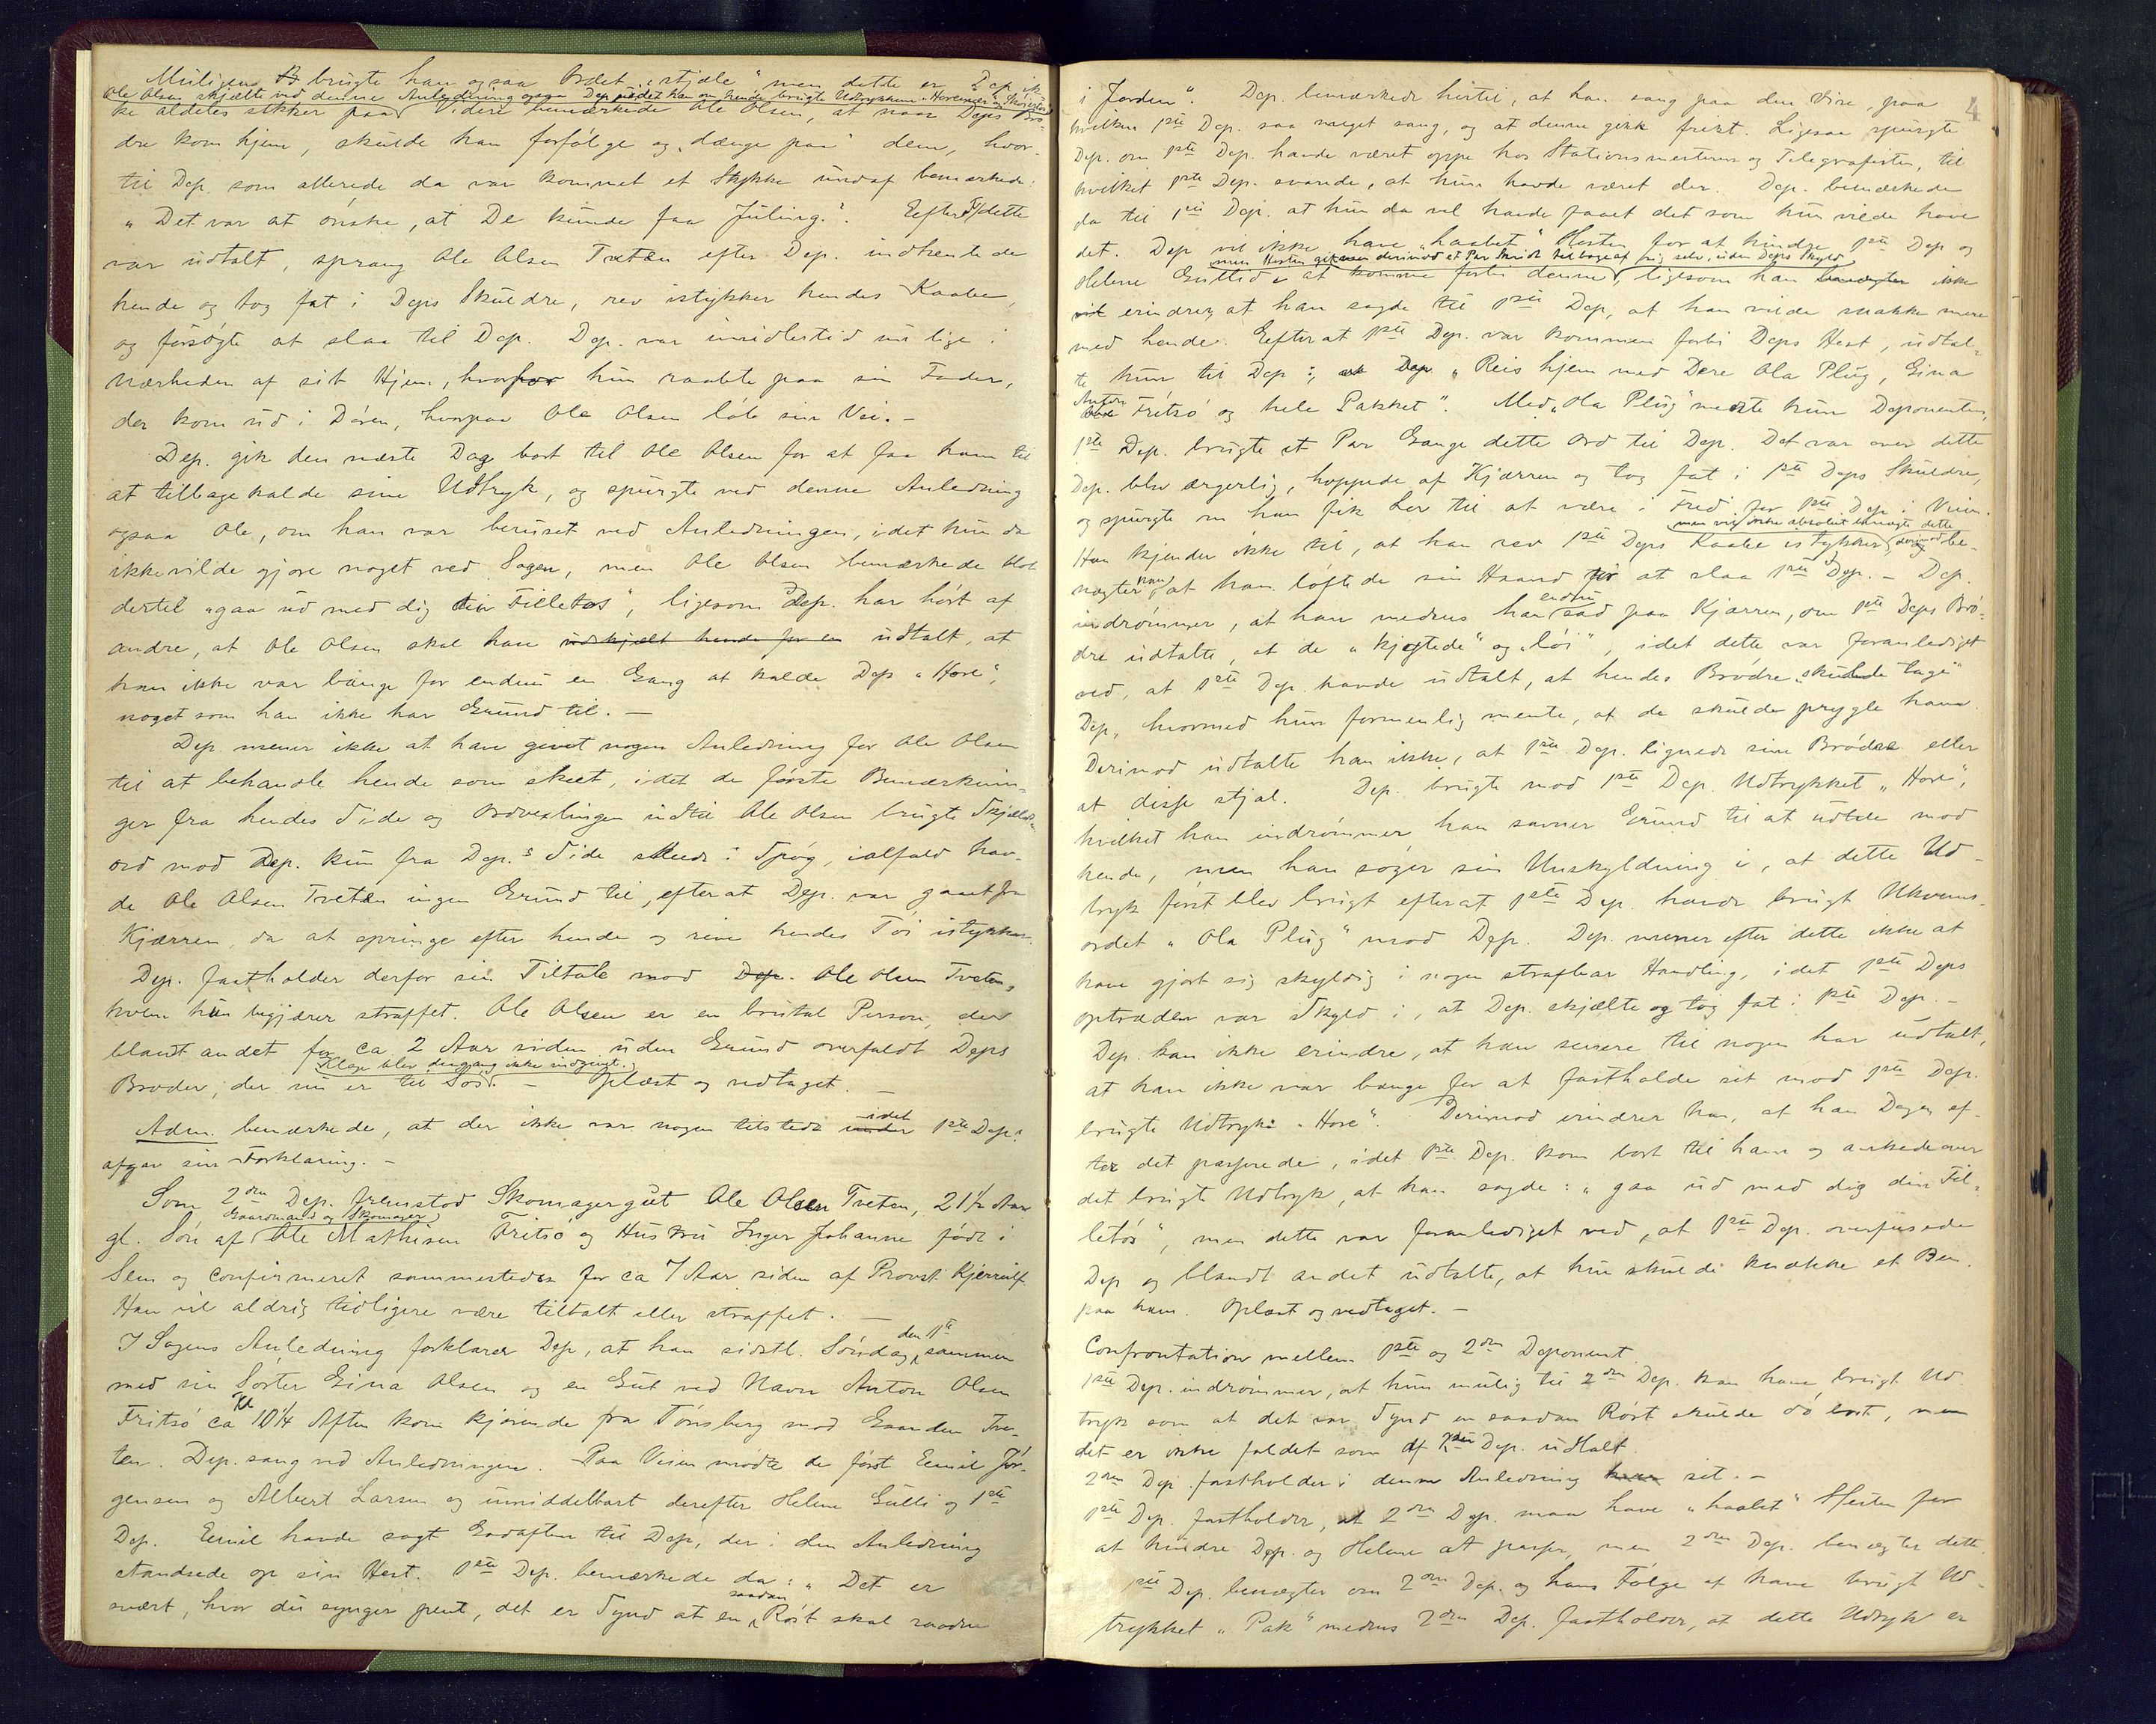 Muligens brugte han ogsaa Ordet "stjæle" men dette er Dep. ik-
Ole Olsen skjælte ved denne Anledning ogsaa Dep idet han om hende brugte Udtrykkene
ke aldeles sikker paa. Videre bemærkede Ole Olsen, at naar Deps Brø-
dre kom hjem, skulde han forfølge og "dænge paa" dem, hvor-
til Dep. som allerede da var kommet et Stykke undaf bemærkede:
"Det var at ønske, at De kunde faa Juling.". Eefter dette
var udtalt, sprang Ole Olsen Tveten efter Dep. indhentede
hende og tog fat i Deps Skuldre, rev istykker hendes Kaabe,
og forsøgte at slaa til Dep. Dep. var imidlertid nu lige i
Nærheden af sit Hjem, hvorfor hun raabte paa sin Fader,
der kom ud i Døren, hvorpaa Ole Olsen løb sin Vei. –
Dep. gik den næste Dag bort til Ole Olsen for at faa ham til
at tilbagekalde sine Udtryk, og spurgte ved denne Anledning
ogsaa Ole, om han var beruset ved Anledningen, idet hun da
ikke vilde gjøre noget ved Sagen, men Ole Olsen bemærkede blot
dertil "gaa ud med dig din Filletøs", ligesom Dep. har hørt af
andre, at Ole Olsen skal have udskjælt hende for en udtalt, at
han ikke var bange for endnu en Gang at kalde Dep "Hore",
noget som han ikke har Grund til. –
Dep. mener ikke at have givet nogen Anledning for Ole Olsen
til at behandle hende som skeet, idet de første Bemærknin-
ger fra hendes Side og Ordvexlingen indtil Ole Olsen brugte Skjælds-
ord mod Dep. kun fra Dep.s Side skede i Spøg, ialfald hav-
de Ole Olsen Tveten ingen Grund til, efterat Dep. var gaaet fra
Kjærren, da at springe efter hende og rive hendes Tøi istykker.
Dep. fastholder derfor sin Tiltale mod Dep. Ole Olsen Tveten,
hvem hun begjærer straffet. Ole Olsen er en brutal Person, der
blant andet for ca 2 Aar siden uden Grund overfaldt Deps
Klage blev dengang ikke indgivet.
Broder, der nu er til Søs. – Oplæst og vedtaget. –
Adm. bemærkede, at der ikke var nogen tilstede under idet 1ste Dep.
afgav sin Forklaring. –
Som 2den Dep. fremstod Skomagergut Ole Olsen Tveten, 21½ Aar
Gaardmand og Skomager
gl. Søn af Ole Mathisen Fritsø og Hustru Inger Johanne født i
Sem og Confirmeret sammesteds for ca 7 Aar siden af Provst Kjerrulf.
Han vil aldrig tidligere være tiltalt eller straffet. –
I Sagens Anledning forklarer Dep, at han sidstl. Søndag, den 11te sammen
med sin Søster Gina Olsen og en Gut ved Navn Anton Olsen
Fritsø ca Kl 10¼ Aften kom kjørende fra Tønsberg mod Gaarden Tve-
ten. Dep. sang ved Anledningen. Paa Veien mødte de først Eemil Jør-
gensen og Albert Larsen og umiddelbart derefter Helene Gulli og 1ste
Dep. Eemil havde sagt Godaften til Dep, der i den Anledning
standsede op sin Hest. 1ste Dep. bemærkede da: "Det er
svært, hvor du synger pent, det er Synd at en saadan Røst skal raadne
4
i Jorden". Dep. bemærkede hertil, at han sang paa den Vise, paa
hvilken 1ste Dep. saa meget sang, og at denne gikk frixt. Ligesaa spurgte
Dep. om 1ste Dep. havde været oppe hos Stationsmesteren og Telegrafisten, til
hvilket 1ste Dep. svarede, at hun havde været der. Dep. bemærkede
da til 1ste Dep. at hun da vel havde faaet det som hun vilde have
det. Dep vil ikke have "haabet" Hesten for at hindre 1ste Dep og
men Hesten derimod et Par Skridt tilbage af sig selv, uden Deps Skyld
Helene at komme forbi denne, ligesom han benægter ikke
vil erindrer, at han sagde til 1ste Dep, at han vilde snakke mere
med hende. Eefterat 1ste Dep. var kommen forbi Deps Hest, udtal-
te hun til Dep:, at Dep "Reis hjem med Dere Ola Plug, Gina
Anton Fritsø og hele Pakket". Med "Ola Plug" mente hun Deponenten,
1ste Dep. brugte et Par Gange dette Ord til Dep. Det var over dette
Dep. blev ærgerlig, hoppede af Kjærren og tog fat i 1ste Deps Skuldre,
og spurgte om han fik Lov til at være i Fred for 1ste Dep i Veien.
men vil ikke absolut benægte dette
Han kjender ikke til, at han rev 1ste Deps Kaabe istykker, derimod be-
nægter han, at han løftede sin Haand for at slaa 1ste Dep. – Dep.
indrømmer, at han medens han endnu sad paa Kjærren, om 1ste Deps Brø-
dre udtalte, at de "kjegtede" og "løi", idet dette var foranlediget
ved, at 1ste Dep. havde udtalt, at hendes Brødre "skulde tage"
Dep, hvormed hun formentlig mente, at de skulde prygle ham.
Derimod udtalte han ikke, at 1ste Dep. lignede sine Brødre eller
at disse stjal. Dep. brugte mod 1ste Dep Udtrykket "Hore",
hvilket han indrømmer han savner Grund til at udtale mod
hende, men han søger sin Undskyldning i, at dette Ud-
tryk først blev brugt efterat 1ste Dep. havde brugt Ukvems-
ordet "Ola Plug" mod Dep. Dep. mener efter dette ikke at
have gjort sig skyldig i nogen strafbar Handling, idet 1ste Deps
Optræden var Skyld i, at Dep. skjælte og tog fat i 1ste Dep. –
Dep. kan ikke erindre, at han senere til nogen har udtalt,
at han ikke var bange for at fastholde sit mod 1ste Dep.
brugte Udtryk: "Hore". Derimod erindrer han, at han Dagen ef-
ter det passerede, idet 1ste Dep. kom bort til ham og ankede over
det brugte Udtryk, at han sagde: "gaa ud med dig din Fil-
letøs", men dette var foranlediget ved, at 1ste Dep. overfusede
Dep og blandt andet udtalte, at hun skulde knække et Ben
paa ham. Oplæst og vedtaget. –
Confrontation mellem 1ste og 2den Deponent
1ste Dep. indrømmer, at hun mulig til 2den Dep. kan have brugt Ud-
tryk som at det var Synd en saadan Røst skulde dø bort, men
det er ikke faldet som af 2den Dep. udtalt.
2den Dep. fastholder i denne Anledning sit. –
1ste Dep. fastholder, at 2den Dep. maa have "haabet" Hesten for
at hindre Dep. og Helene at passere, men 2den Dep. benægter dette.
1ste Dep. benægter om 2den Dep. og hans Følge at have brugt Ud-
trykket "Pak" medens 2den Dep. fastholder, at dette Udtryk er